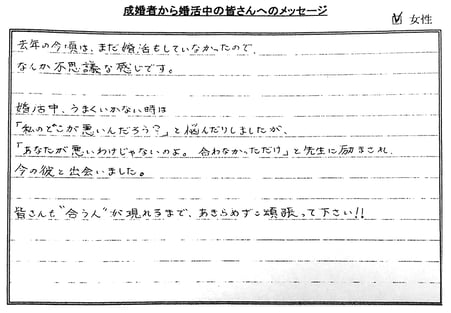 成婚者から婚活中の皆さんへのメッセージ
☑ 女性
去年の今頃は、まだ婚活もしていなかったので、
なんか不思議な感じです。
婚活中、うまくいかない時は
「私のどこが悪いんだろう?」と悩んだりしましたが、
「あなたが悪いわけじゃないのよ。合わなかっただけ」と先生に励まされ、
今の彼と出会いました。
皆さんも"合う人"が現れるまで、あきらめずに頑張って下さい!!